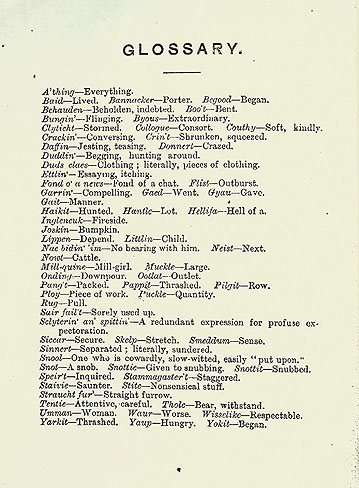 GLOSSARY.
A'thing—Everything.
Baid—Lived. Bannacker—Porter. Begood—Began.
Behauden—Beholden, indebted. Boo't—Bent.
Bungin'—Flinging. Byous—Extraordinary.
Clyticht—Stormed. Collogue—Consort. Couthy—Soft, kindly.
Crackin'—Conversing. Crin't—Shrunken, squeezed.
Daffin—Jesting, teasing. Donnert—Crazed.
Duddin'—Begging, hunting around.
Duds claes—Clothing; literally, pieces of clothing.
Ettlin'—Essaying, itching.
Fond o' a news—Fond of a chat. Flist—Outburst.
Garrin'—Compelling. Gaed—Went. Gyau—Gave.
Gait—Manner.
Haikit—Hunted. Hantle—Lot. Hellifa—Hell of a.
Inglencuk—Fireside.
Joskin—Bumpkin.
Lippen—Depend. Littlin—Child.
Nae bidin' 'im—No bearing with him. Neist—Next.
Nowt—Cattle.
Mill-quine—Mill-girl. Muckle—Large.
Onding—Downpour. Ootlat—Outlet.
Pang't—Packed. Pappit—Thrashed. Pilgit—Row.
Ploy—Piece of work. Puckle—Quantity.
Rug—Pull.
Sair fail't—Sorely used up.
Sclyterin' an' spittin'—A redundant expression for profuse ex-
pectoration.
Siccar—Secure. Skelp—Stretch. Smeddum—Sense.
Sinnert—Separated; literally, sundered.
Snool—One who is cowardly, slow-witted, easily "put upon."
Snot—A snob. Snottie—Given to snubbing. Snottit—Snubbed.
Speir't—Inquired. Stammagaster't—Staggered.
Staivie—Saunter. Stite—Nonsensical stuff.
Straucht fur'—Straight furrow.
Tentie—Attentive, careful. Thole—Bear, withstand.
Umman—Woman. Waur—Worse. Wisselike—Respectable.
Yarkit—Thrashed. Yaup—Hungry. Yokit—Began.